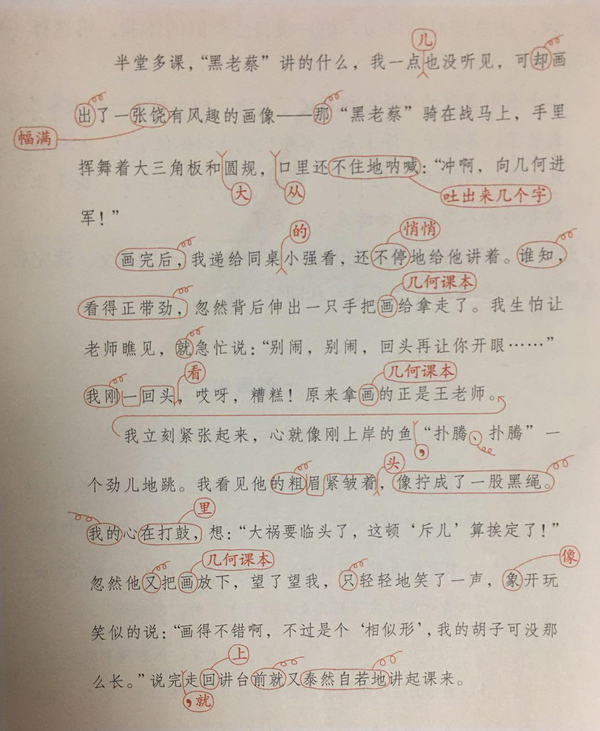 几
半堂多课，“黑老蔡”讲的什么，我一点也没听见，可却画
出了一张饶有风趣的画像——那“黑老蔡”骑在战马上，手里
幅满
挥舞着大三角板和圆规，口里还不住地呐喊：“冲啊，向几何进
大 从 吐出来几个字
军！”
的 悄悄
画完后，我递给同桌小强看，还不停地给他讲着。谁知，
几何课本
看得正带劲，忽然背后伸出一只手把画给拿走了。我生怕让
老师瞧见，就急忙说：“别闹，别闹，回头再让你开眼……”
看 几何课本
我刚一回头，哎呀，糟糕！原来拿画的正是王老师。
我立刻紧张起来，心就像刚上岸的鱼“扑腾、扑腾”一
， 头
个劲儿地跳。我看见他的粗眉紧皱着，像拧成了一股黑绳。
里
我的心在打鼓，想：“大祸要临头了，这顿‘斥儿’算挨定了！”
几何课本 像
忽然他又把画放下，望了望我，只轻轻地笑了一声，象开玩
笑似的说：“画得不错啊，不过是个‘相似形’，我的胡子可没那
上
么长。”说完走回讲台前就又泰然自若地讲起课来。
，就